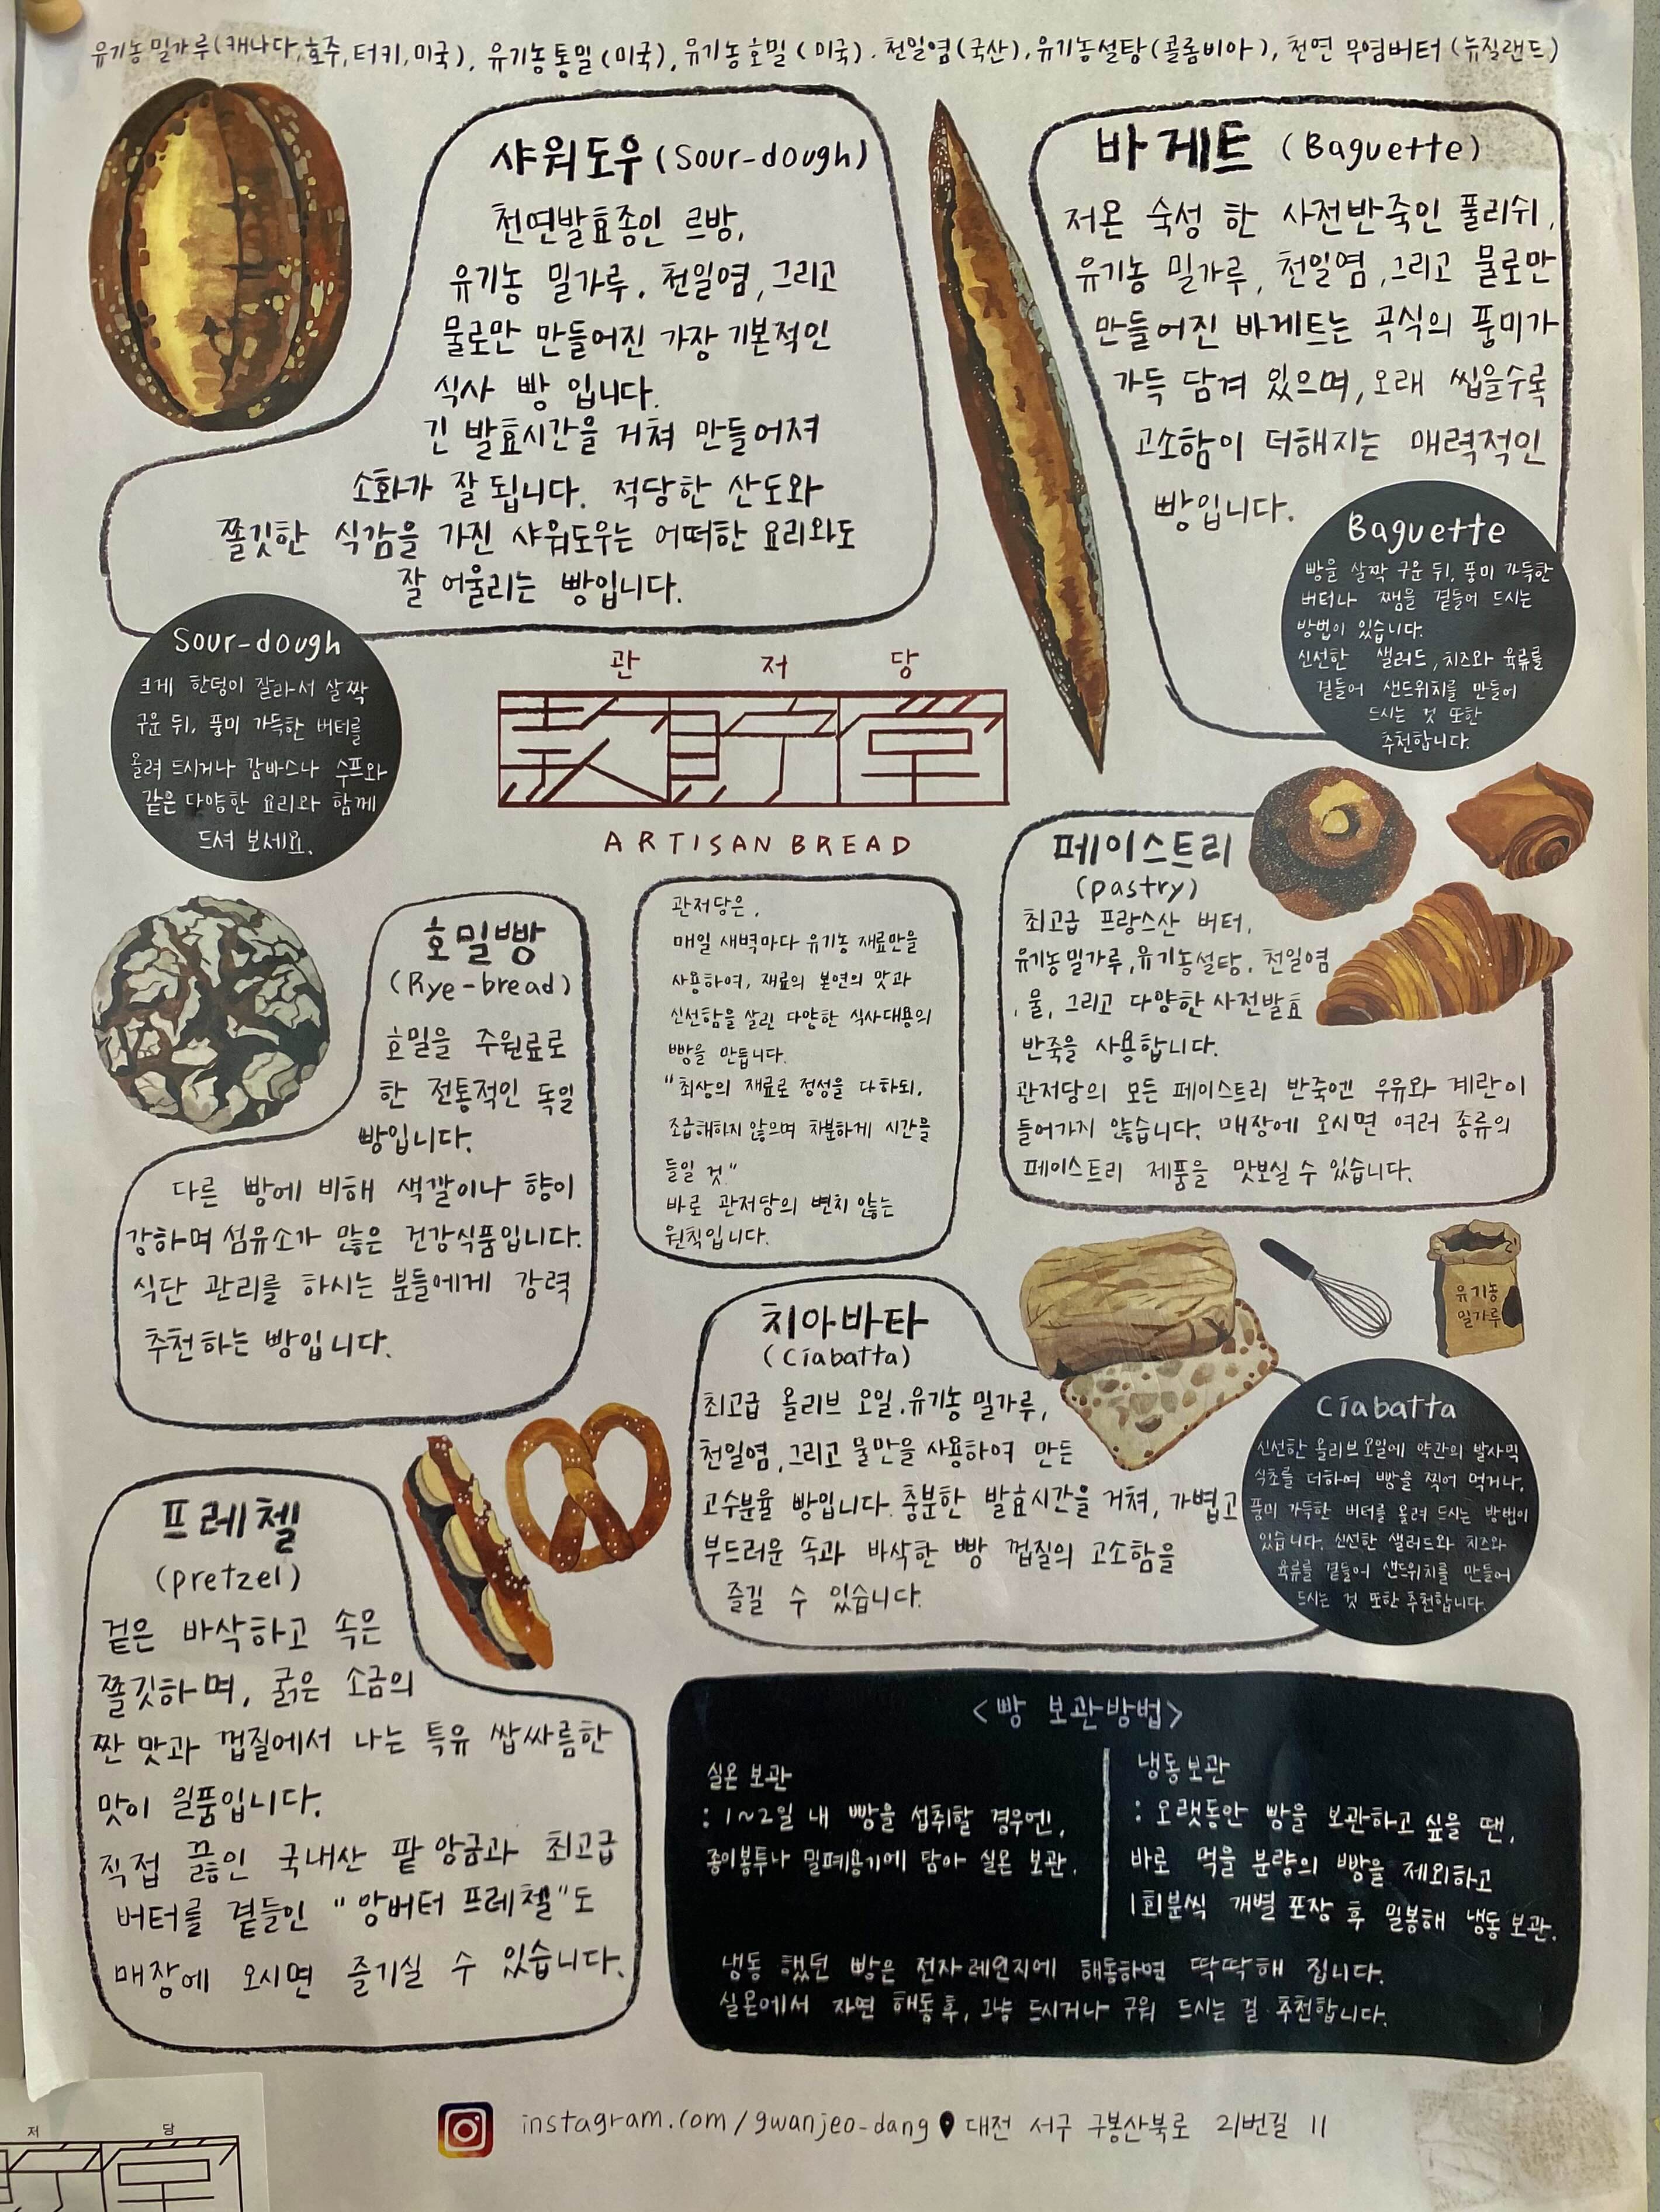 유기농 밀가루(캐나다,호주,터키,미국), 유기농통밀(미국), 유기농호밀(미국). 천일염(국산),유기농설탕(콜롬비아), 천연 무염버터(뉴질랜드)
샤워도우(Sour-dough)
천연발효종인 르방,
유기농 밀가루, 천일염, 그리고
물로만 만들어진 가장 기본적인
식사 빵 입니다.
긴 발효시간을 거쳐 만들어져
소화가 잘 됩니다. 적당한 산도와
쫄깃한 식감을 가진 샤워도우는 어떠한 요리와도
잘 어울리는 빵입니다.
Sour-dough
크게 한덩이 잘라서 살짝
구운 뒤, 풍미 가득한 버터를
올려 드시거나 감바스나 수프와
같은 다양한 요리와 함께
드셔 보세요.
바게트 (Baguette)
저온 숙성 한 사전반죽인 풀리쉬,
유기농 밀가루, 천일염, 그리고 물로만
만들어진 바게트는 곡식의 풍미가
가득 담겨 있으며, 오래 씹을수록
고소함이 더해지는 매력적인
빵입니다.
Baguette
빵을 살짝 구운 뒤, 풍미 가득한
버터나 쨈을 곁들어 드시는
방법이 있습니다.
신선한 샐러드, 치즈와 육류를
곁들어 샌드위치를 만들어
드시는 것 또한
추천합니다.
관 저 당
款貯堂
ARTISAN BREAD
관저당은,
매일 새벽마다 유기농 재료만을
사용하여, 재료의 본연의 맛과
신선함을 살린 다양한 식사대용의
빵을 만듭니다.
"최상의 재료로 정성을 다하되,
조급해하지 않으며 차분하게 시간을
들일 것"
바로 관저당의 변치 않는
원칙입니다.
페이스트리
(pastry)
최고급 프랑스산 버터,
유기농밀가루, 유기농설탕, 천일염
, 물, 그리고 다양한 사전발효
반죽을 사용합니다.
관저당의 모든 페이스트리 반죽엔 우유와 계란이
들어가지 않습니다. 매장에 오시면 여러 종류의
페이스트리 제품을 맛보실 수 있습니다.
호밀빵
(Rye-bread)
호밀을 주원료로
한 전통적인 독일
빵입니다.
다른 빵에 비해 색깔이나 향이
강하며 섬유소가 많은 건강식품입니다.
식단 관리를 하시는 분들에게 강력
추천하는 빵입니다.
치아바타
(Ciabatta)
최고급 올리브 오일, 유기농 밀가루,
천일염, 그리고 물만을 사용하여 만든
고수분율 빵입니다. 충분한 발효시간을 거쳐, 가볍고
부드러운 속과 바삭한 빵 껍질의 고소함을
즐길 수 있습니다.
유기농
밀가루
Ciabatta
신선한 올리브오일에 약간의 발사믹
식초를 더하여 빵을 찍어 먹거나,
풍미 가득한 버터를 올려 드시는 방법이
있습니다. 신선한 샐러드와 치즈와
육류를 곁들어 샌드위치를 만들어
드시는 것 또한 추천합니다.
프레첼
(pretzel)
겉은 바삭하고 속은
쫄깃하며, 굵은 소금의
짠 맛과 껍질에서 나는 특유 쌉싸름한
맛이 일품입니다.
직접 끓인 국내산 팥 앙금과 최고급
버터를 곁들인 "앙버터 프레첼"도
매장에 오시면 즐기실 수 있습니다.
<빵 보관방법>
실온 보관
: 1~2일 내 빵을 섭취할 경우엔,
종이봉투나 밀폐용기에 담아 실온 보관.
냉동보관
: 오랫동안 빵을 보관하고 싶을 땐,
바로 먹을 분량의 빵을 제외하고
1회분씩 개별 포장 후 밀봉해 냉동보관.
냉동 했던 빵은 전자레인지에 해동하면 딱딱해 집니다.
실온에서 자연 해동 후, 그냥 드시거나 구워 드시는 걸 추천합니다.
instagram.com/gwanjeo-dang 대전 서구 구봉산북로 21번길 11
저 당